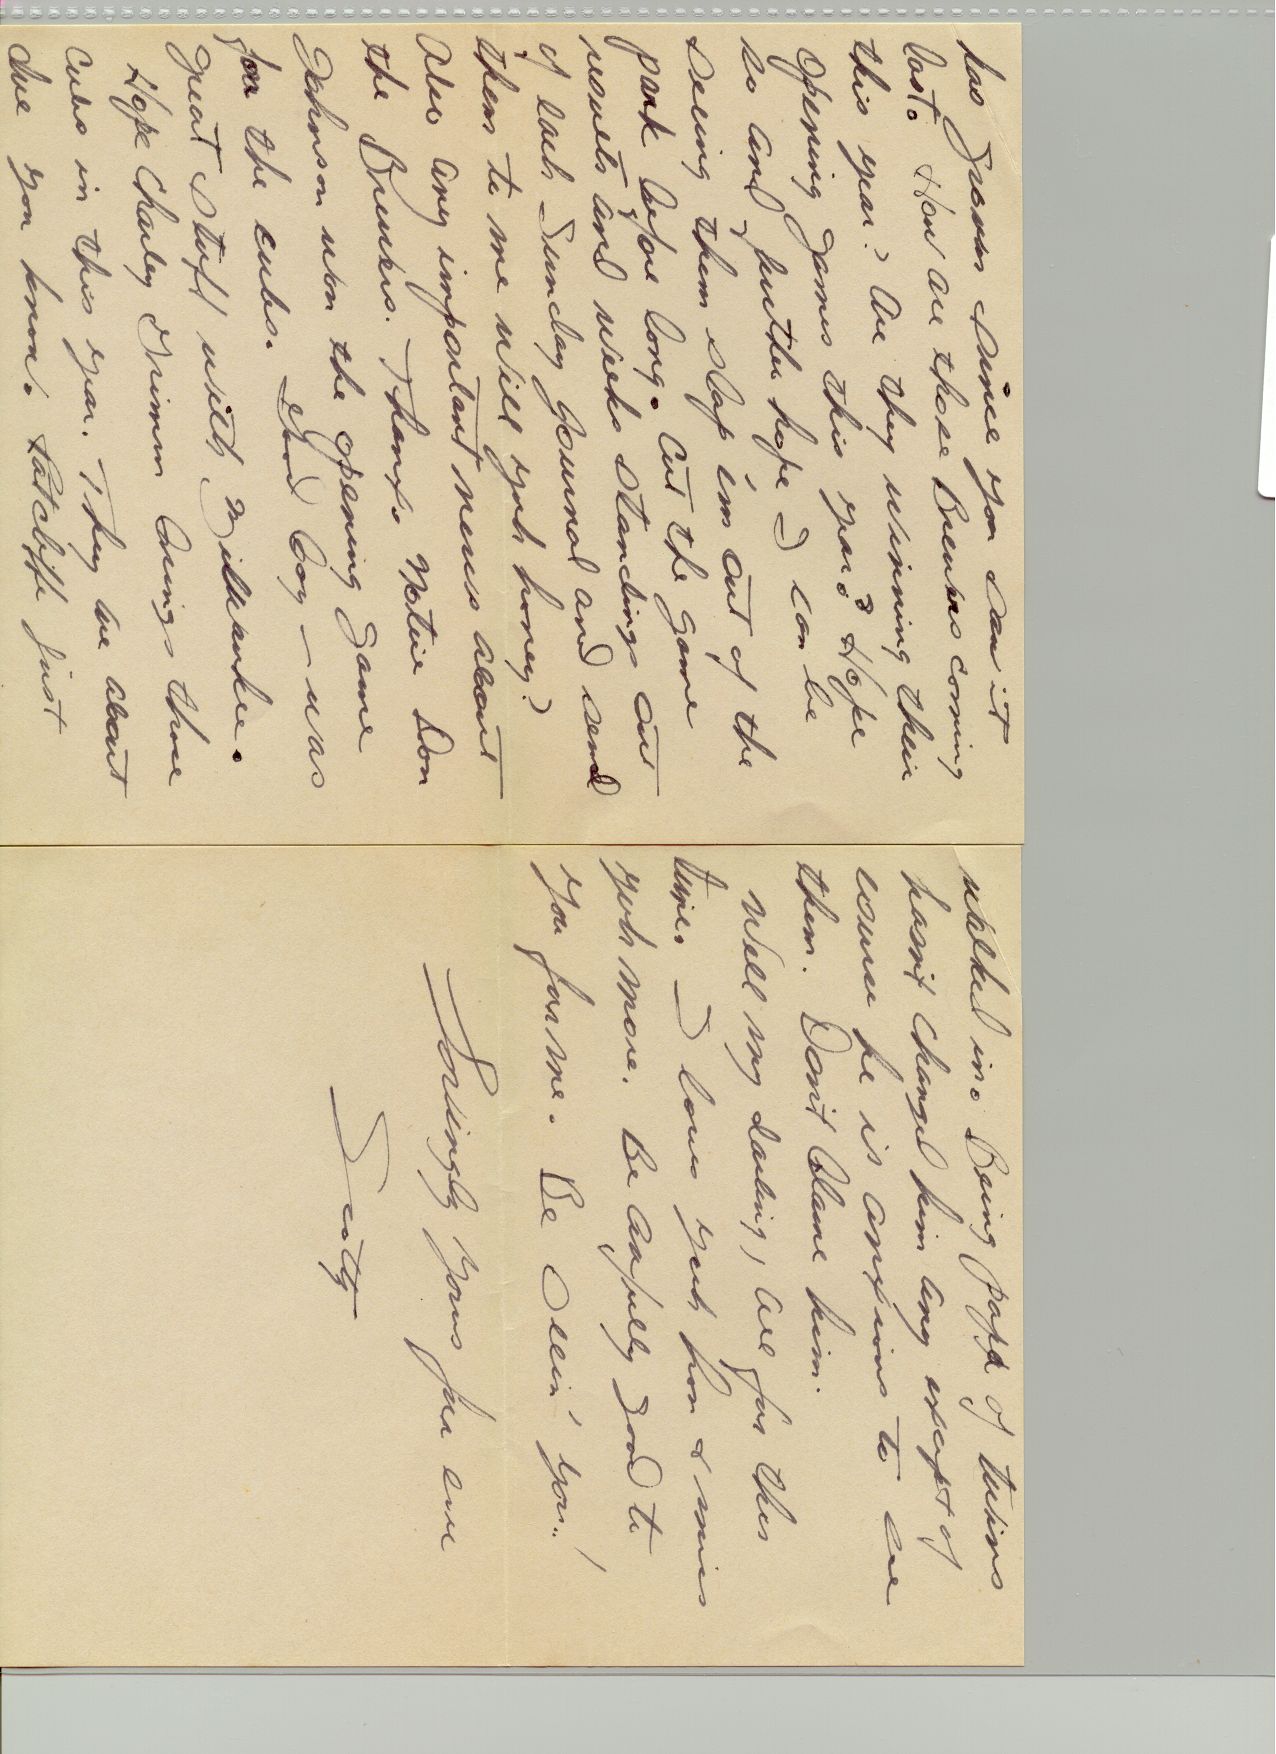 has grown since you saw it
last. How are those Brewers coming
this year? Are they winning their
opening games this year? Hope
so and further hope I can be
seeing them slap 'em out of the
park before long. Cut the game
results and weeks standings out
of each Sunday Journal and send
them to me will yuh honey?
Also any important news about
the Brewers. Thanx. Notice Don
Johnson won the opening game
for the cubs. Good boy - was
great stuff with Milwaukee.
Hope Charley Grimm brings those
Cubs in this year. They are about
due you know. Ratcliffe just
walked in. Being papa of twins
hasn't changed him any except of
course he is anxious to see
them. Don't blame him.
Well my darling, all for this
time. I loves yuh hon & miss
yuh more. Be awfully good to
you for me. Be Seein' you!
Lovingly yours for ever
Scotty